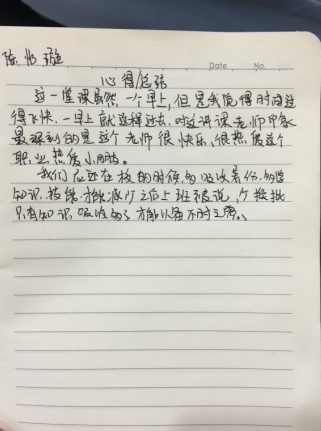 陈怡璇
Date No.
心得总结
这一堂课虽然一个早上,但是我觉得时间过
得飞快,一早上就这样过去,对这讲课老师印象
最深刻的是这个老师很快乐,很热爱这个
职业,热爱小朋友。
我们应还在校的时候多吸收养份,多学
知识,技能,才能减少之后上班
只有知识吸收够了才能以备不时之需。